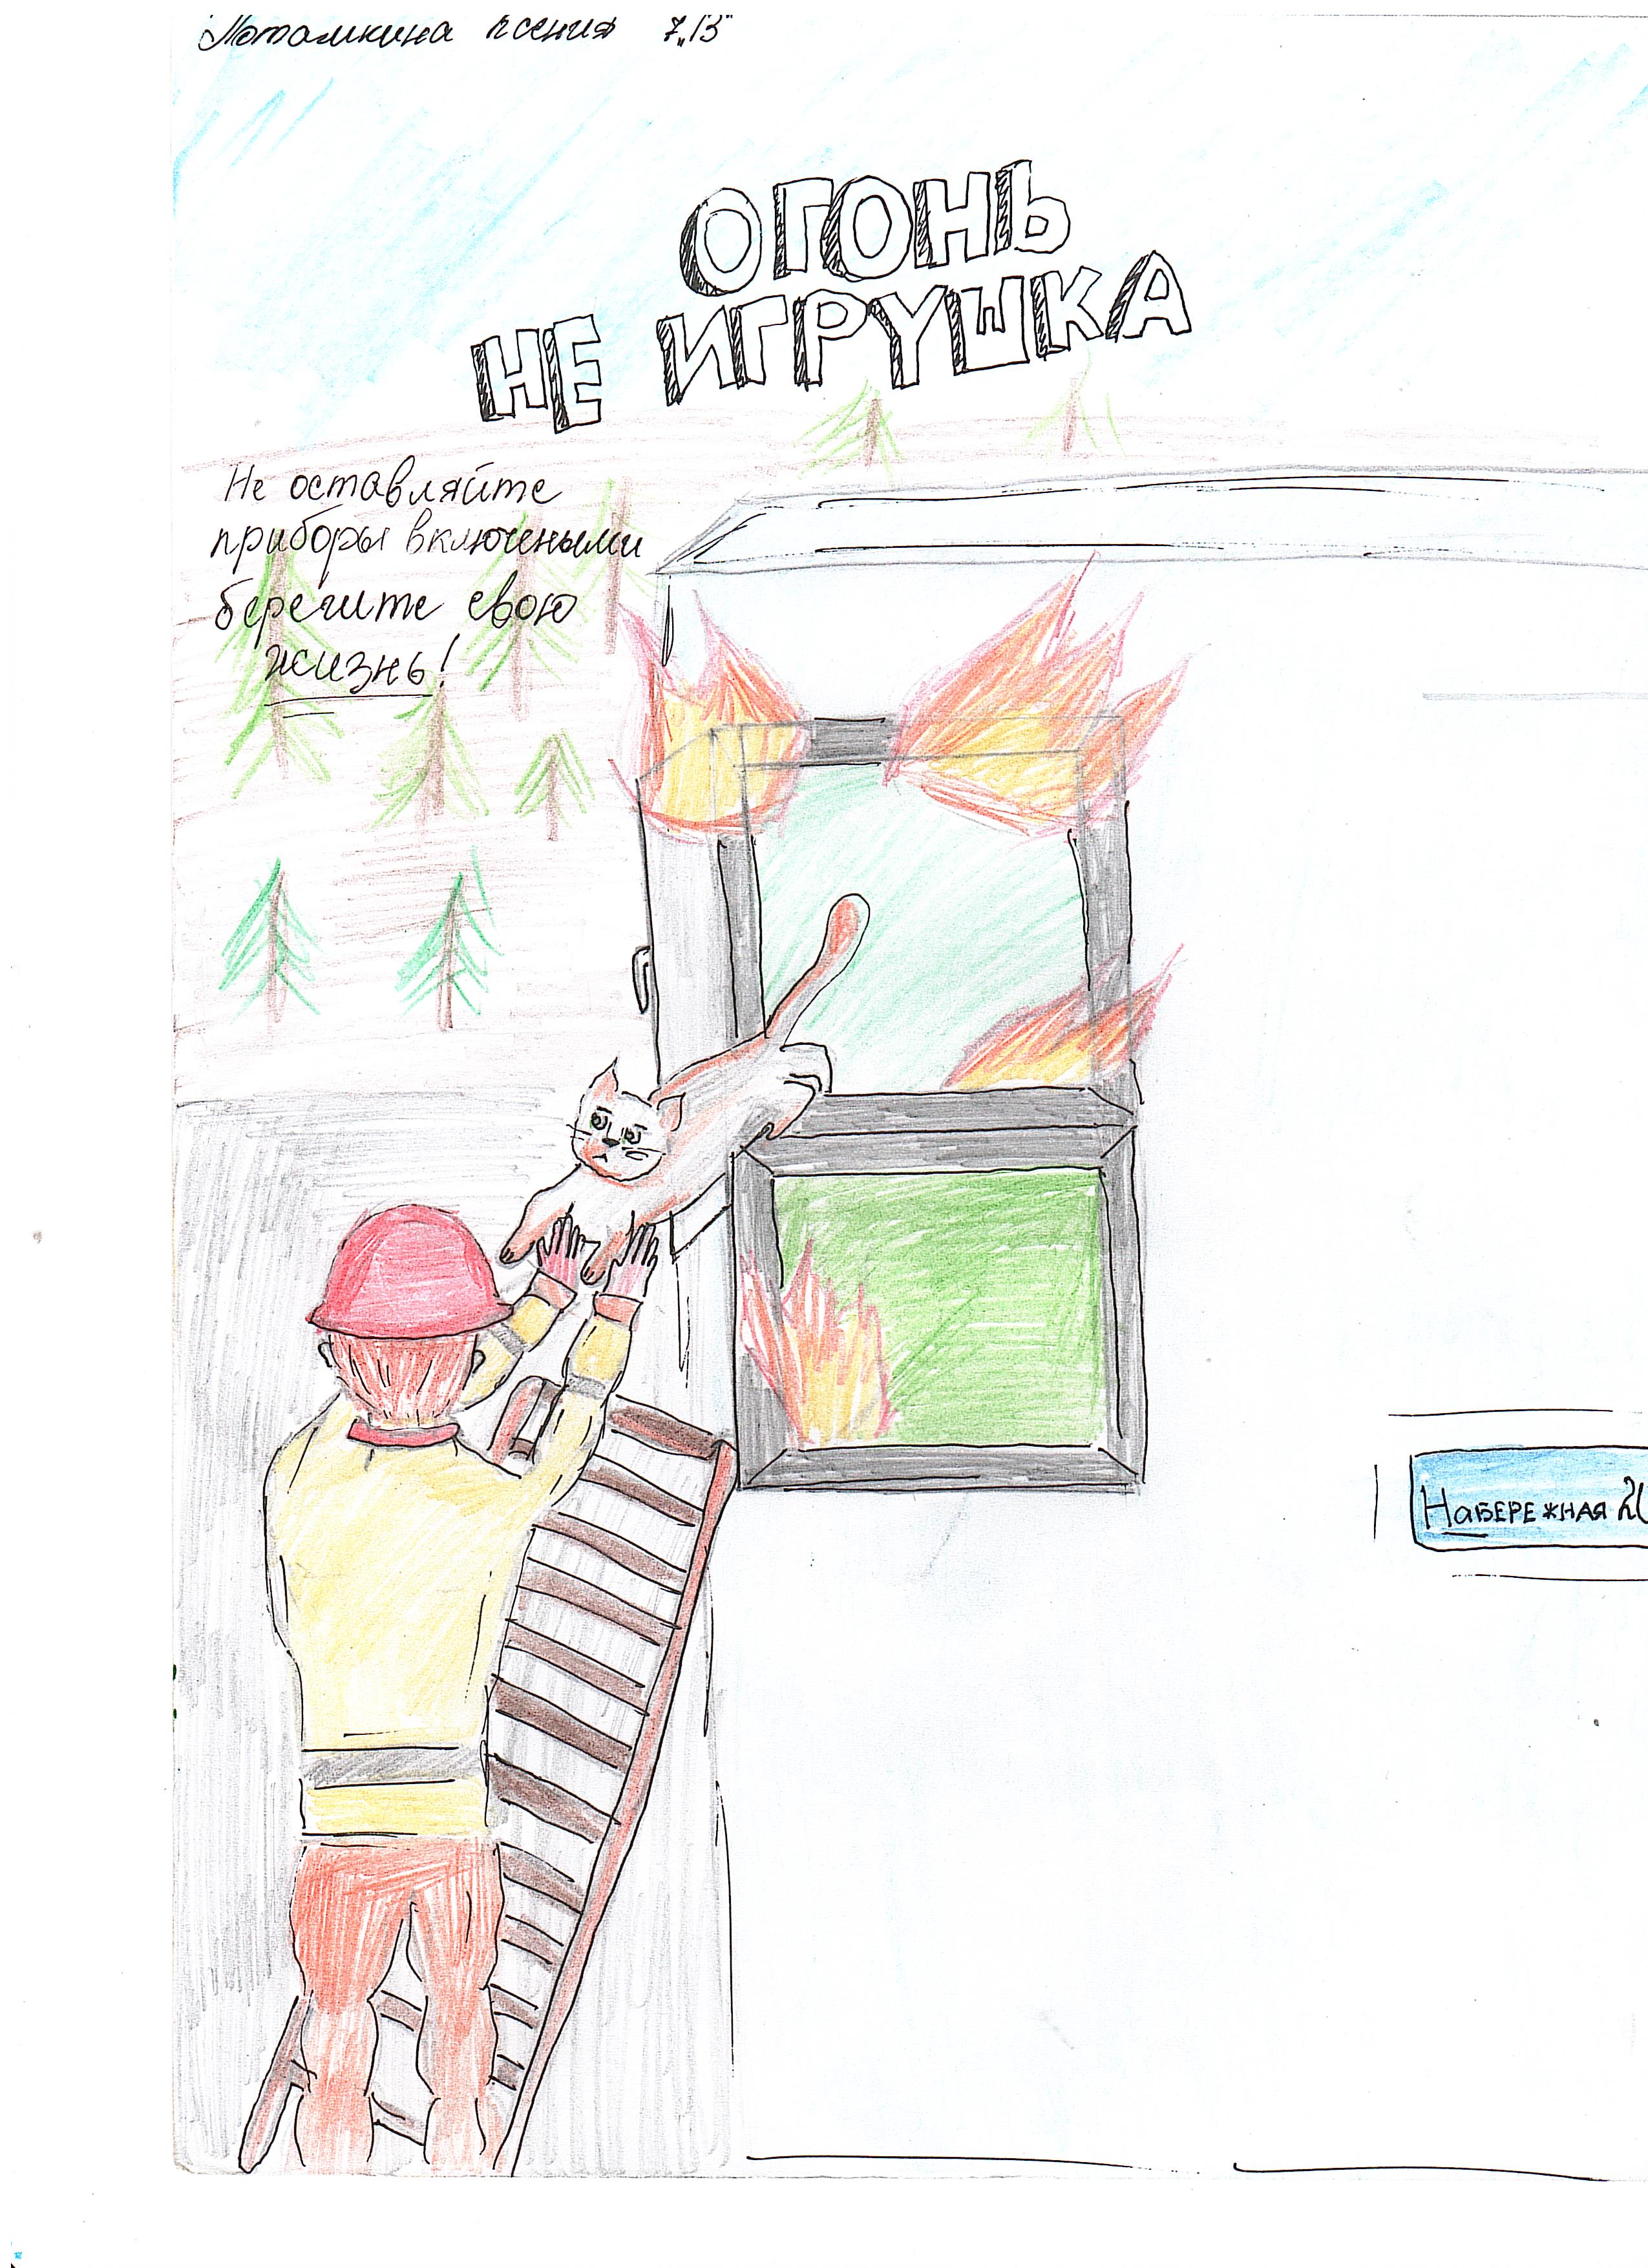 Потамкина Ксения 7„В"
ОГОНЬ
НЕ ИГРУШКА
Не оставляйте
приборы включеными
берегите свою
жизнь!
НаБЕРЕЖНАЯ